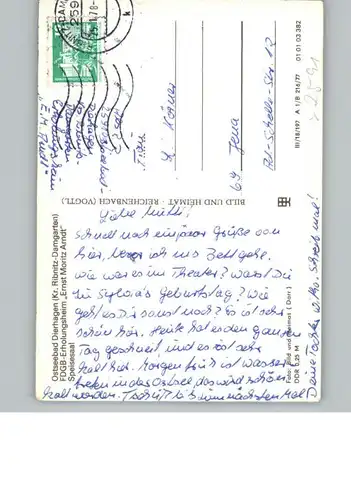 Ostseebad Dierhagen (Kr. Ribnitz-Damgarten)
FDGB-Erholungsheim „Ernst Moritz Arndt"
Speisesaal
BILD UND HEIMAT · REICHENBACH (VOGTL)
Foto: Bild und Heimat (Darr)
DDR 0,25 M
III/18/197 A 1/B 216/77 01 01 03 382
2591
69 Jena
Liebe Mutti!
Schnell noch ein paar Grüße von
hier, bevor ich ins Bett gehe.
Wie war es im Theater? Warst Du
zu Geburtstag? Wie
geht es Dir sonst noch? Es ist sehr
schön hier. Heute hat es den ganzen
Tag geschneit und es ist sehr
kalt hier. Morgen früh ist Wasser-
treten in der Ostsee, das wird schön
kalt werden. Tschüß bis zum nächsten Mal
Deine Tochter Schreib mal!